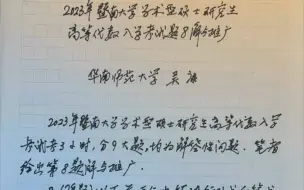 2023年暨南大学学术型硕士研究生
高等代数入学考试题8解与推广
华南师范大学 吴
2023年暨南大学学术型硕士研究生高等代数入学
考试卷3小时,含9大题,均为解答性问题.笔者
给出第8题解与推广.